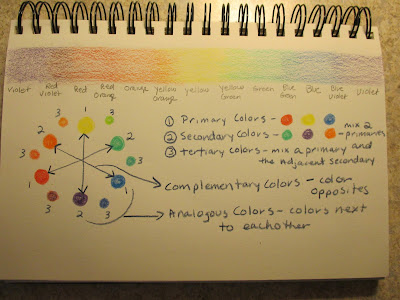 Violet Red Violet Red Red Orange Orange Yellow Orange Yellow Yellow Green Green Blue Green Blue Blue Violet Violet
3 1 3
2 2
3 3
1 1
3 2 3
① Primary Colors - mix 2
② Secondary Colors - - primaries
③ tertiary colors - mix a primary and
the adjacent secondary
Complementary Colors - color
opposites
Analogous Colors - colors next
to eachother